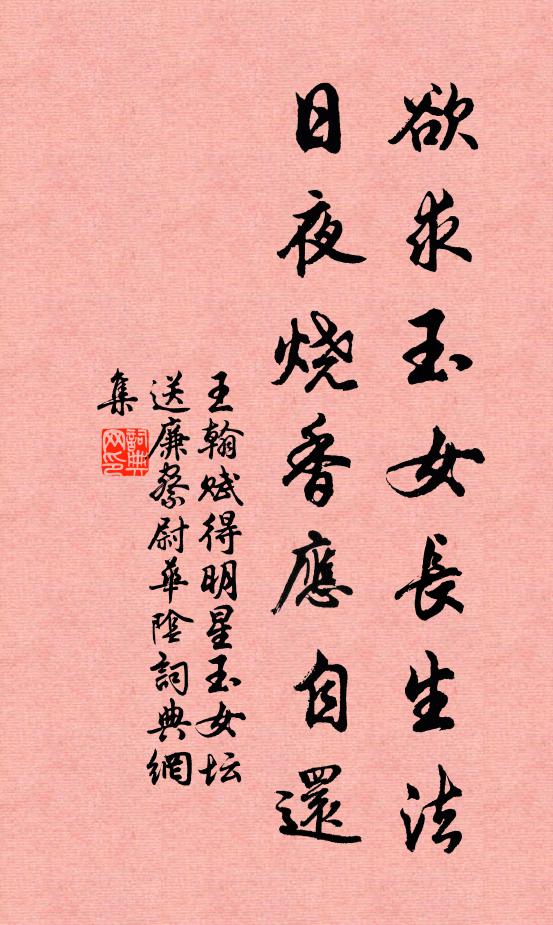 欲求玉女長生法
日夜烧香應自還
王翰赋得明星玉女坛
送廉察尉華陰詞典網
集
詞典
网印